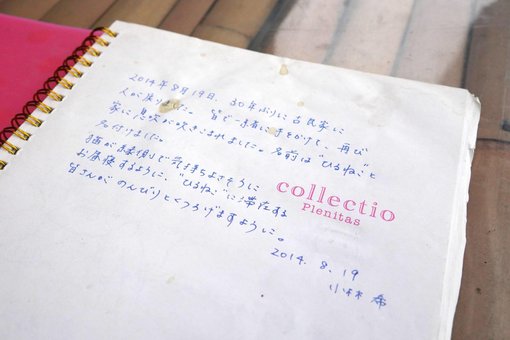 2014年8月19日、30年ぶりに古民家に
人が戻りました。皆で一緒に手をかけて、再び
家に息吹が吹きこまれました。名前は"ひるねこ"と
名付けました。
猫が縁側で気持ちよさそうに
お昼寝するように、"ひるねこ"に滞在する
皆さんが のんびりとくつろげますように。
collectio
Plenitas
2014. 8. 19
小林 希